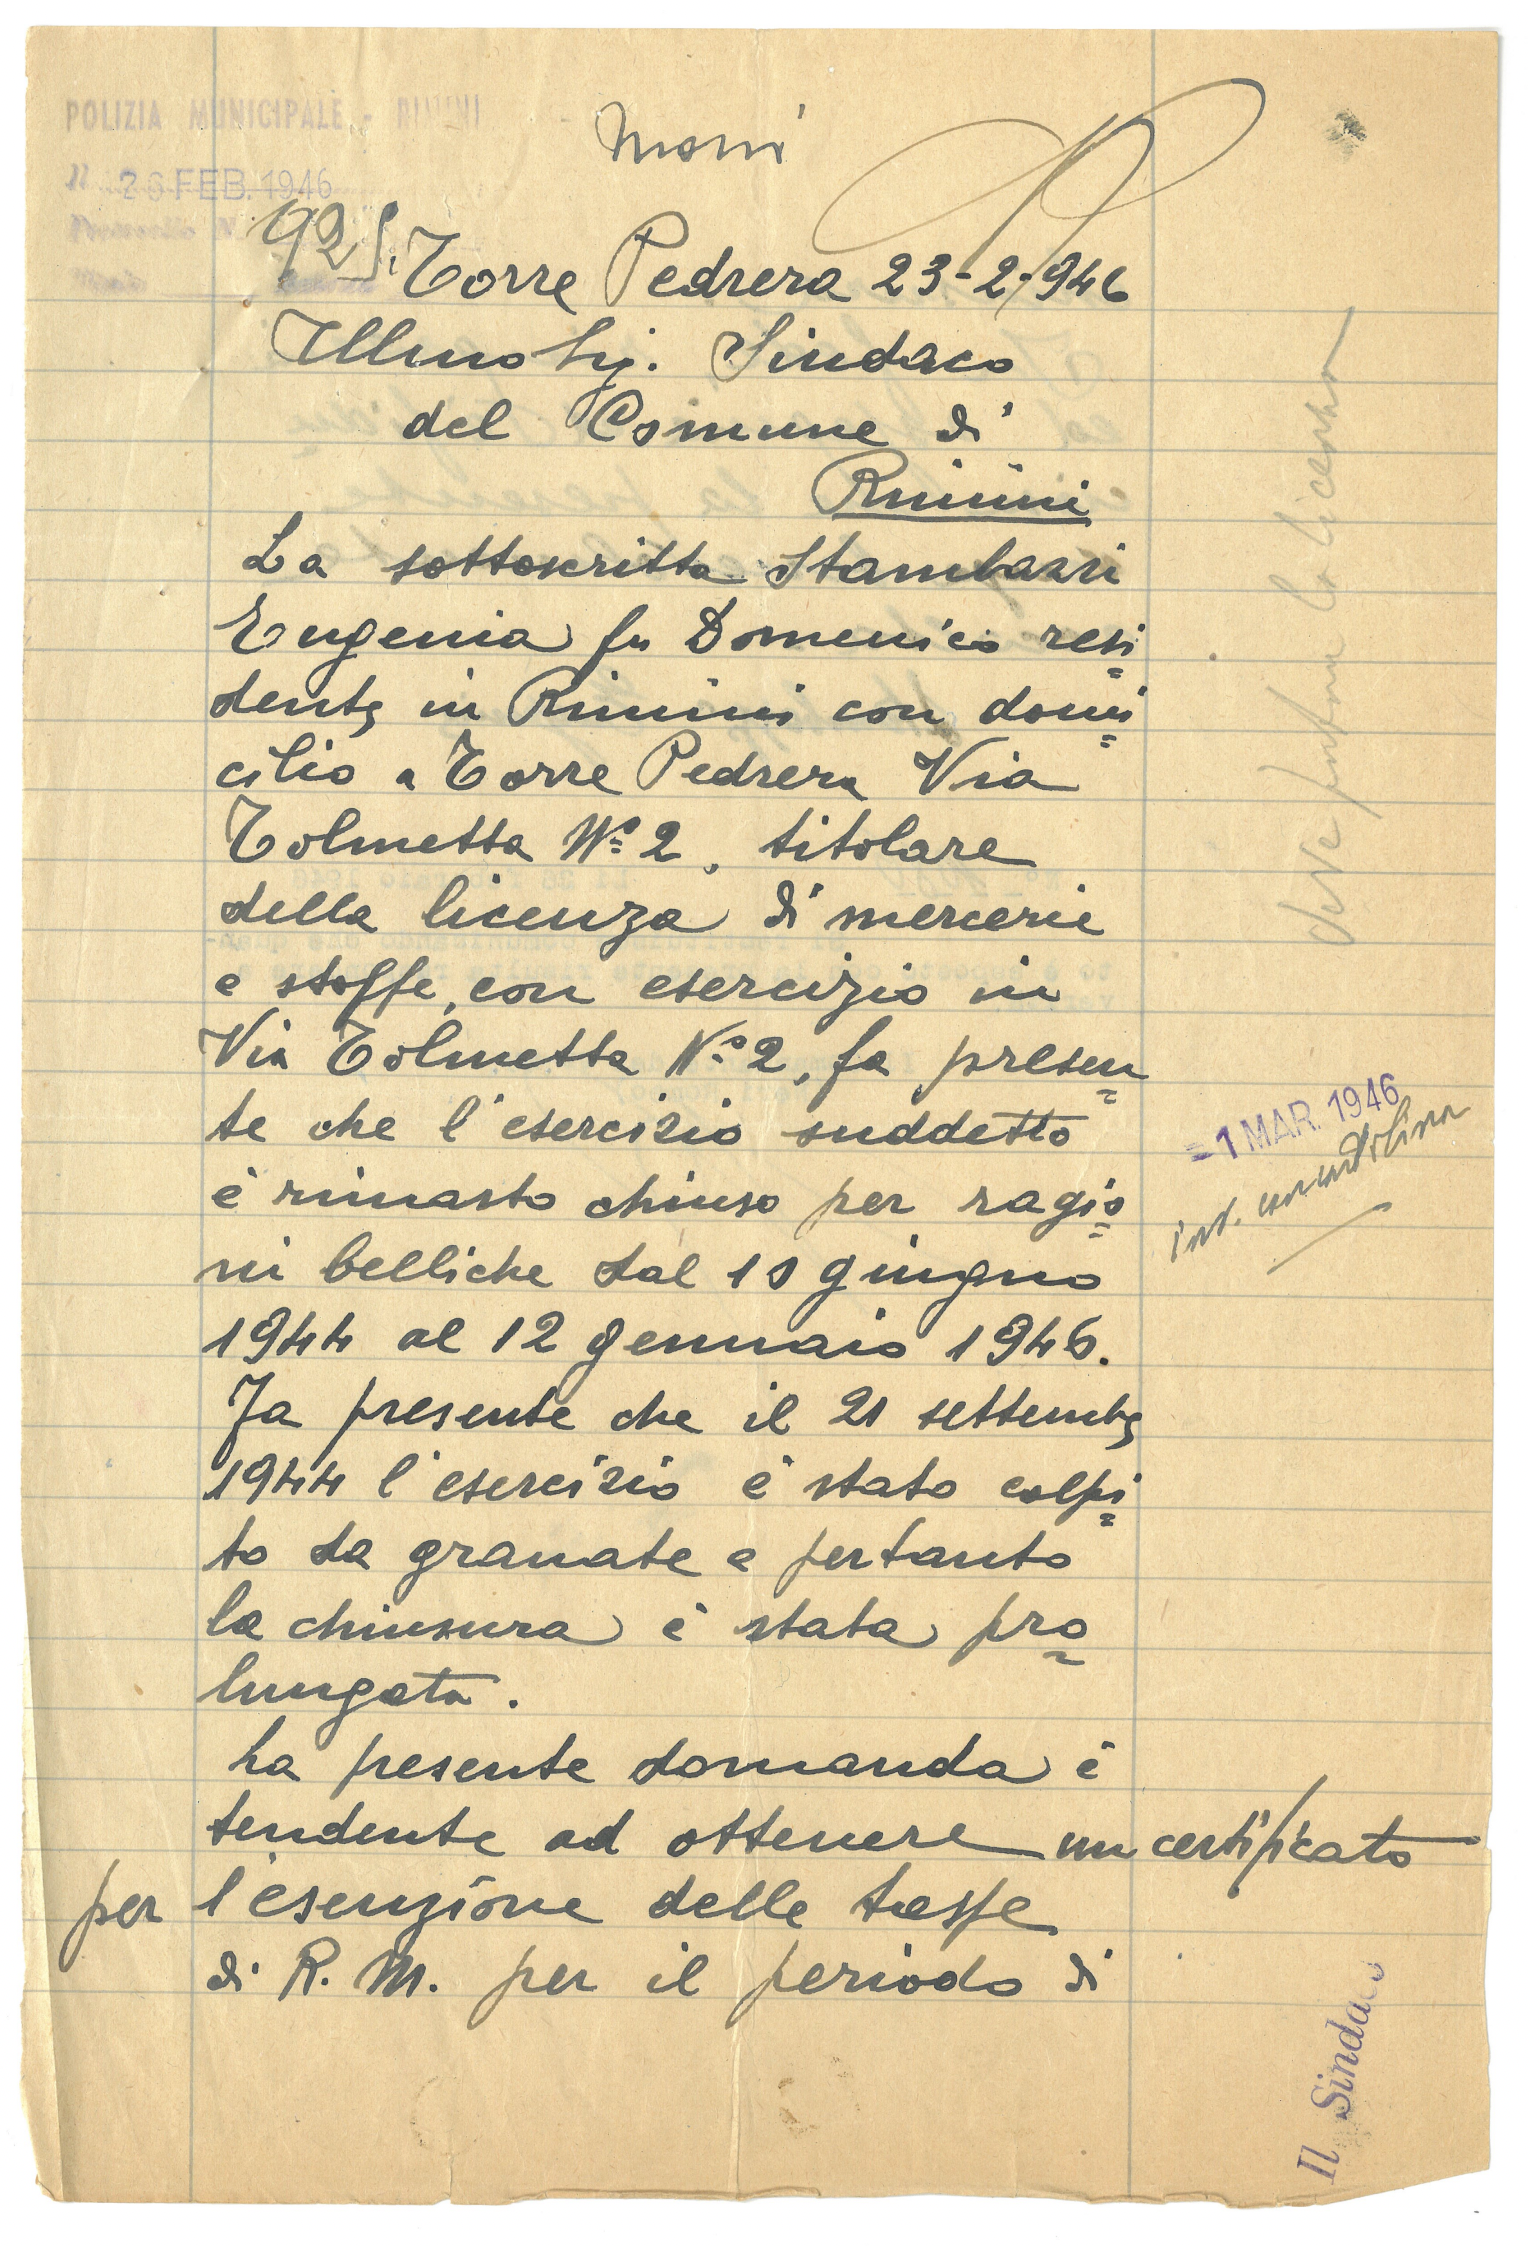 POLIZIA MUNICIPALE - RIMINI
Il 26 FEB. 1946
Protocollo N.
Torre Pedrera 23-2-946
Illmo Sig. Sindaco
del Comune di
Rimini
La sottoscritta Stambazzi
Eugenia fu Domenico resi=
dente in Rimini con domi=
cilio a Torre Pedrera Via
Tolmetta N° 2, titolare
della licenza di mercerie
e stoffe, con esercizio in
Via Tolmetta N° 2, fa presen=
te che l'esercizio suddetto
è rimasto chiuso per ragio=
ni belliche dal 10 giugno
1944 al 12 gennaio 1946.
Fa presente che il 21 settembre
1944 l'esercizio è stato colpi=
to da granate e pertanto
la chiusura è stata pro=
lungata.
La presente domanda è
tendente ad ottenere un certificato
per l'esenzione delle tasse
di R. M. per il periodo di
deve portare la licenza
=1 MAR. 1946
Il Sindaco